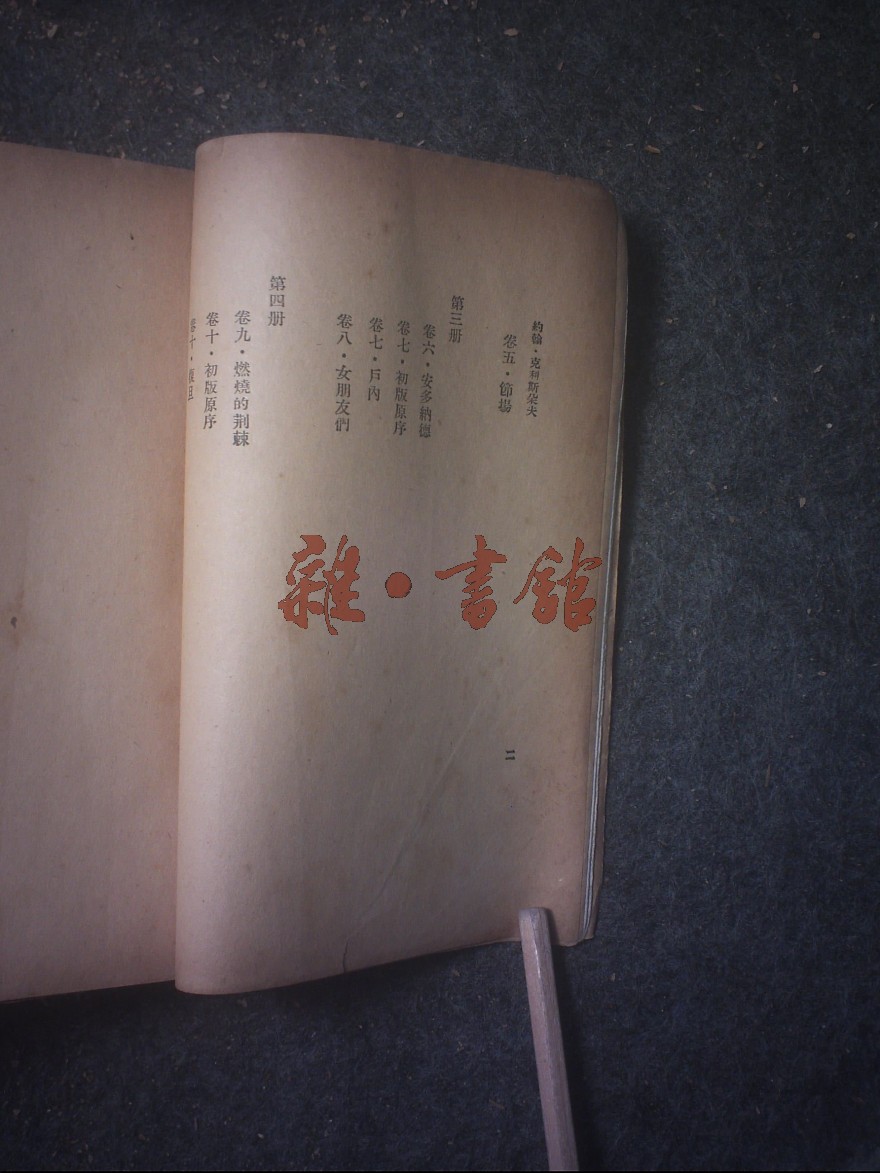 約翰·克利斯朶夫
卷五·節場
第三册
卷六·安多納德
卷七·初版原序
卷七·戶內
卷八·女朋友們
第四册
卷九·燃燒的荆棘
卷十·初版原序
卷十·復旦
二
雜·書館